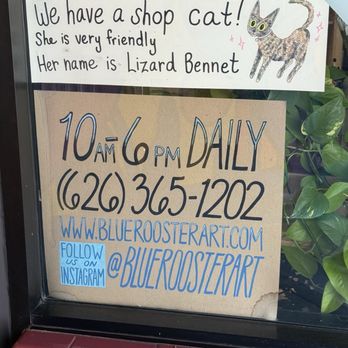 We have a shop cat!
She is very friendly
Her name is Lizard Bennet
10AM-6PM DAILY
(626) 365-1202
WWW.BLUEROOSTERART.COM
FOLLOW
US ON
INSTAGRAM
@BLUEROOSTERART